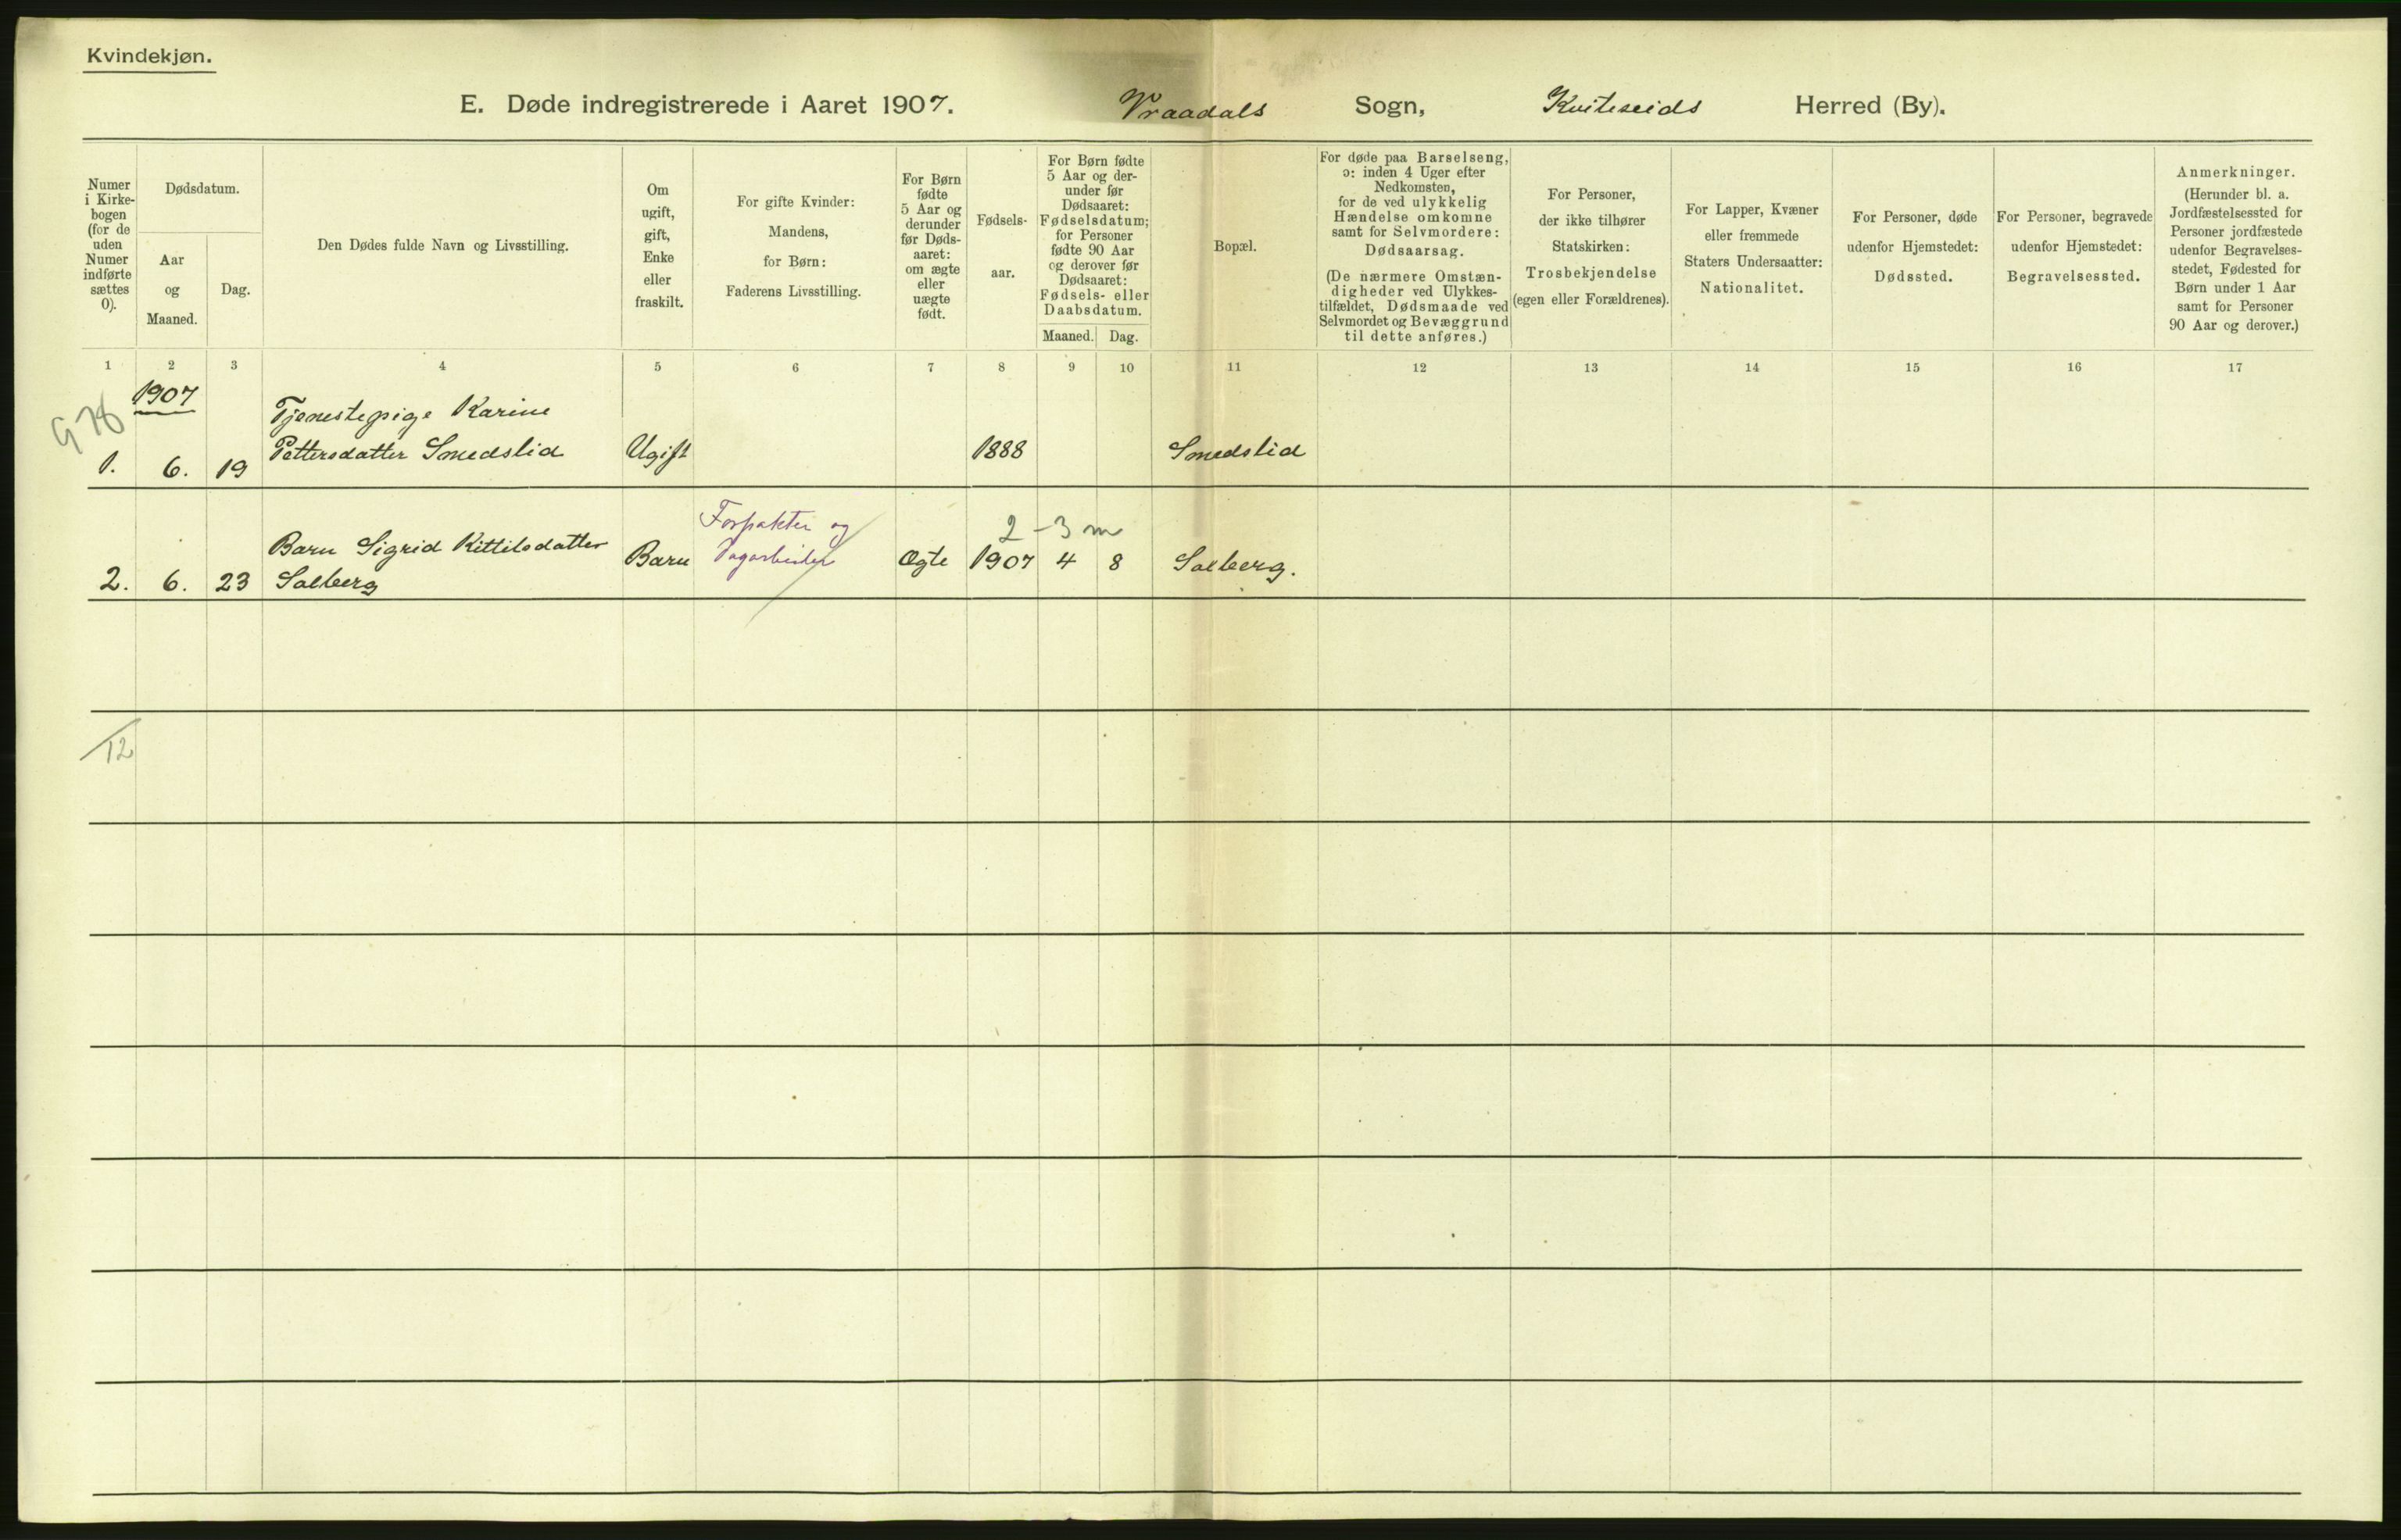 Kvindekjøn.
E. Døde indregistrerede i Aaret 1907. Vraadals Sogn, Kviteseids Herred (By).
Numer
i Kirke-
bogen
(for de
uden
Numer
indførte
sættes
0).
Dødsdatum.
Aar
og
Maaned.
Dag.
Den Dødes fulde Navn og Livsstilling.
Om
ugift,
gift,
Enke
eller
fraskilt.
For gifte Kvinder:
Mandens,
for Børn:
Faderens Livsstilling.
For Børn
fødte
5 Aar og
derunder
før Døds-
aaret:
om ægte
eller
uægte
født.
Fødsels-
aar.
For Børn fødte
5 Aar og der-
under før
Dødsaaret:
Fødselsdatum;
for Personer
fødte 90 Aar
og derover før
Dødsaaret:
Fødsels- eller
Daabsdatum.
Maaned. Dag.
Bopæl.
For døde paa Barselseng,
ɔ: inden 4 Uger efter
Nedkomsten,
for de ved ulykkelig
Hændelse omkomne
samt for Selvmordere:
Dødsaarsag.
(De nærmere Omstæn-
digheder ved Ulykkes-
tilfældet, Dødsmaade ved
Selvmordet og Bevæggrund
til dette anføres.)
For Personer,
der ikke tilhører
Statskirken:
Trosbekjendelse
(egen eller Forældrenes).
For Lapper, Kvæner
eller fremmede
Staters Undersaatter:
Nationalitet.
For Personer, døde
udenfor Hjemstedet:
Dødssted.
For Personer, begravede
udenfor Hjemstedet:
Begravelsessted.
Anmerkninger.
(Herunder bl. a.
Jordfæstelsessted for
Personer jordfæstede
udenfor Begravelses-
stedet, Fødested for
Børn under 1 Aar
samt for Personer
90 Aar og derover.)
1 2 3 4 5 6 7 8 9 10 11 12 13 14 15 16 17
1907
978
Tjenestepige Karine
1. 6. 19 Pettersdatter Smedslid Ugift 1888 Smedslid
Forpakter og
2-3 m
Barn Sigrid Kittilsdatter Barn Dagarbeider Ægte 1907 4 8 Solberg.
2. 6. 23 Solberg
12